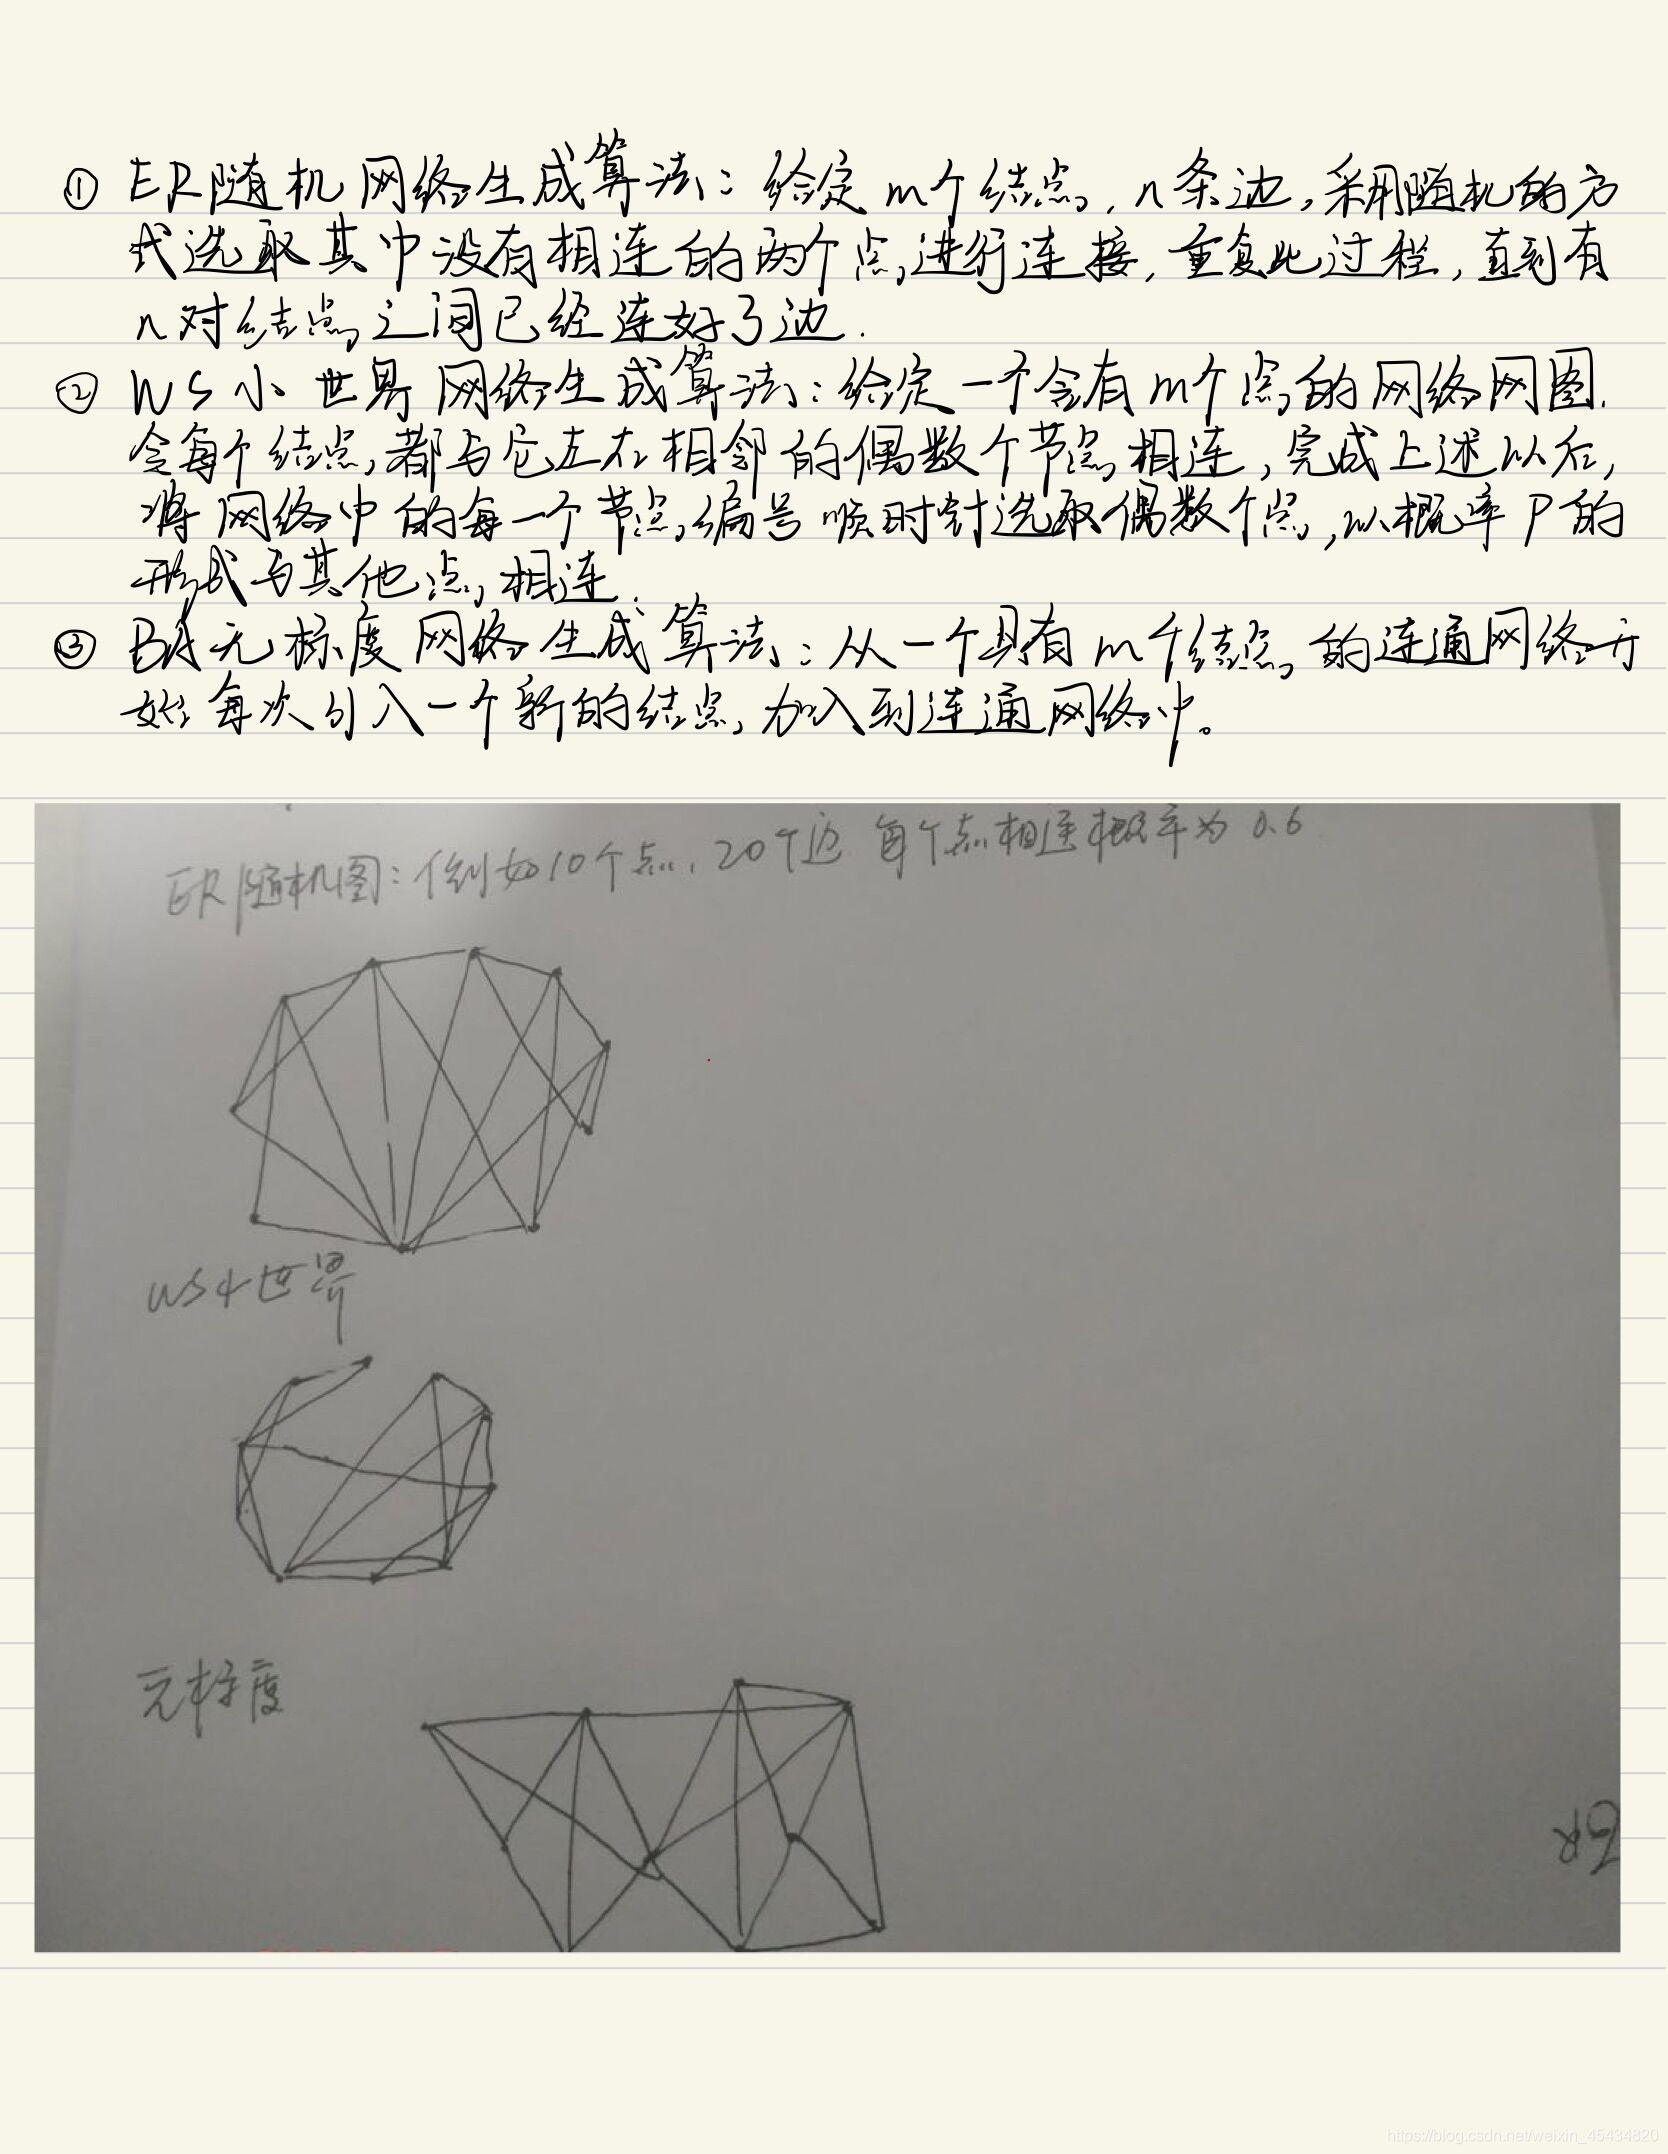 ① ER随机网络生成算法：给定m个结点，n条边，采用随机的方
式选取其中没有相连的两个点进行连接，重复此过程，直到有
n对结点之间已经连好了边.
② WS小世界网络生成算法：给定一个含有m个点的网络网图.
令每个结点都与它左右相邻的偶数个节点相连，完成上述以后，
将网络中的每一个节点编号顺时针选取偶数个点，以概率P的
形式与其他点相连.
③ BA无标度网络生成算法：从一个具有m个结点的连通网络开
始每次引入一个新的结点，加入到连通网络中。
ER随机图：例如10个点，20个边 每个点相连概率为0.6
WS小世界
无标度
ER
https://blog.csdn.net/weixin_45434820